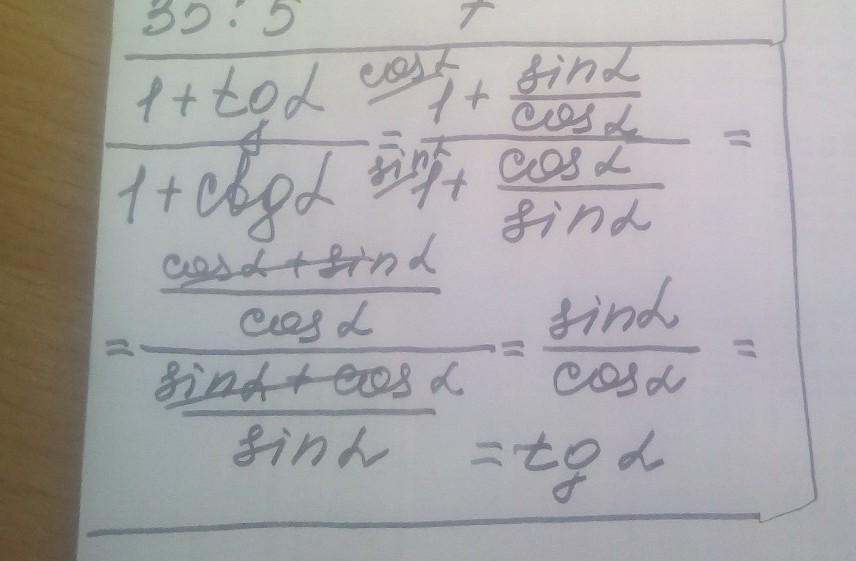 35:5 7
1 + tg α / 1 + ctg α = cos α / 1 + sin α / cos α / sin α / 1 + cos α / sin α =
= cos α + sin α / cos α / sin α + cos α / sin α = sin α / cos α =
= tg α